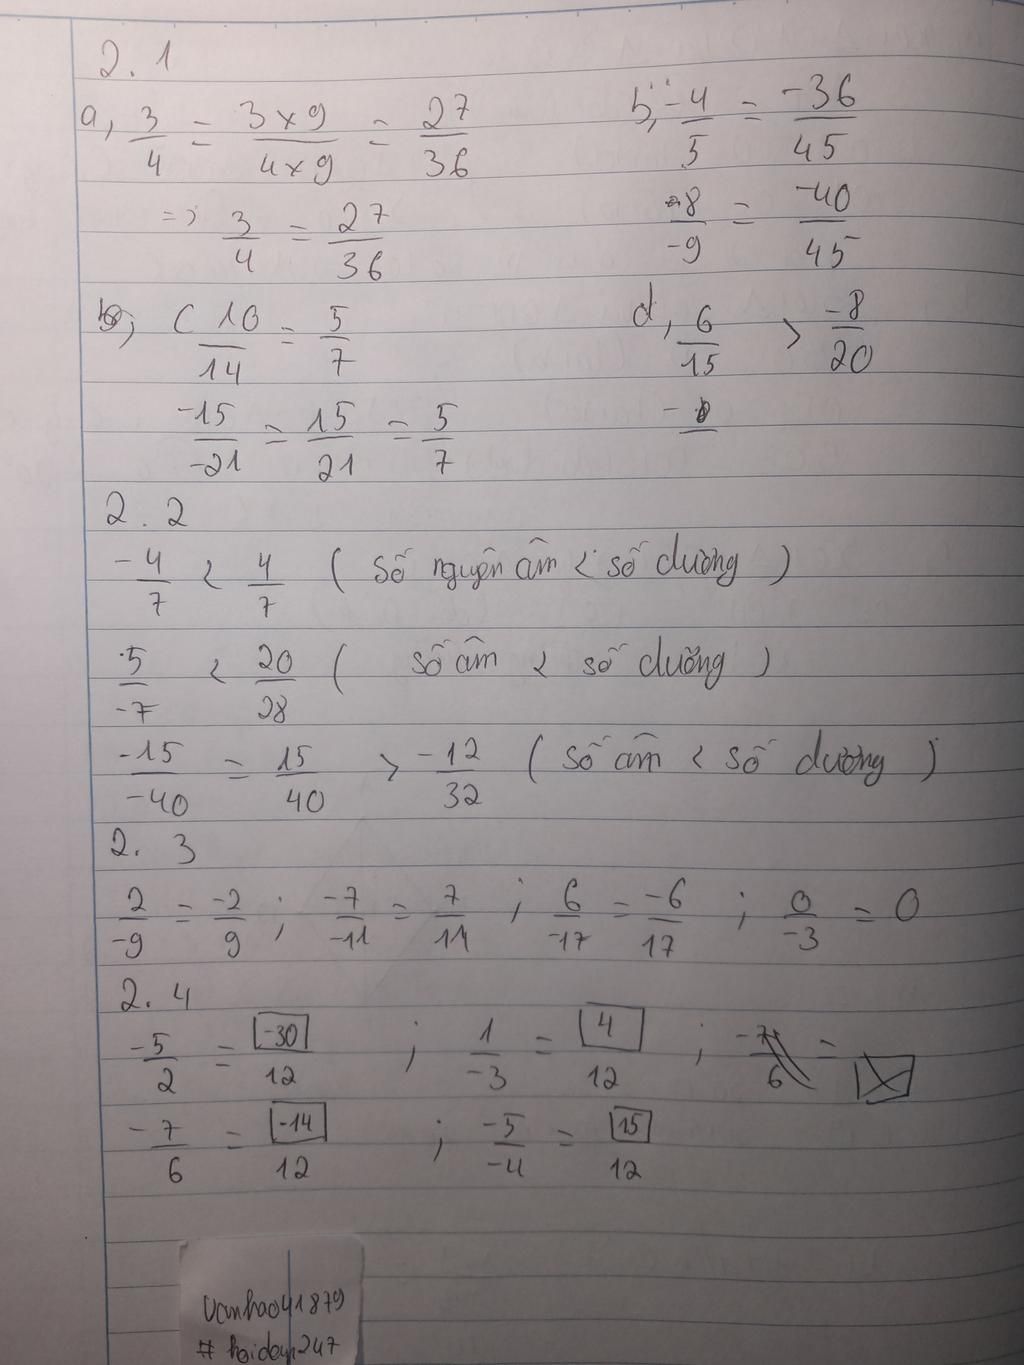 2.1
a, 3/4 = 3x9/4x9 = 27/36
=> 3/4 = 27/36
b, -4/5 = -36/45
-8/-9 = -40/45
c 10/14 = 5/7
-15/-21 = 15/21 = 5/7
d, 6/15 > -8/20
2.2
-4/7 < 4/7 ( số nguyên âm < số dương )
5/-7 < 20/28 ( số âm < số dương )
-15/-40 = 15/40 > -12/32 ( số âm < số dương )
2.3
2/-9 = -2/9 ; -7/-11 = 7/11 ; 6/-17 = -6/17 ; 0/-3 = 0
2.4
-5/2 = -30/12 ; 1/-3 = 4/12 ; -7/6 =
-7/6 = -14/12 ; -5/-4 = 15/12
vanhao41879
# hoidap247